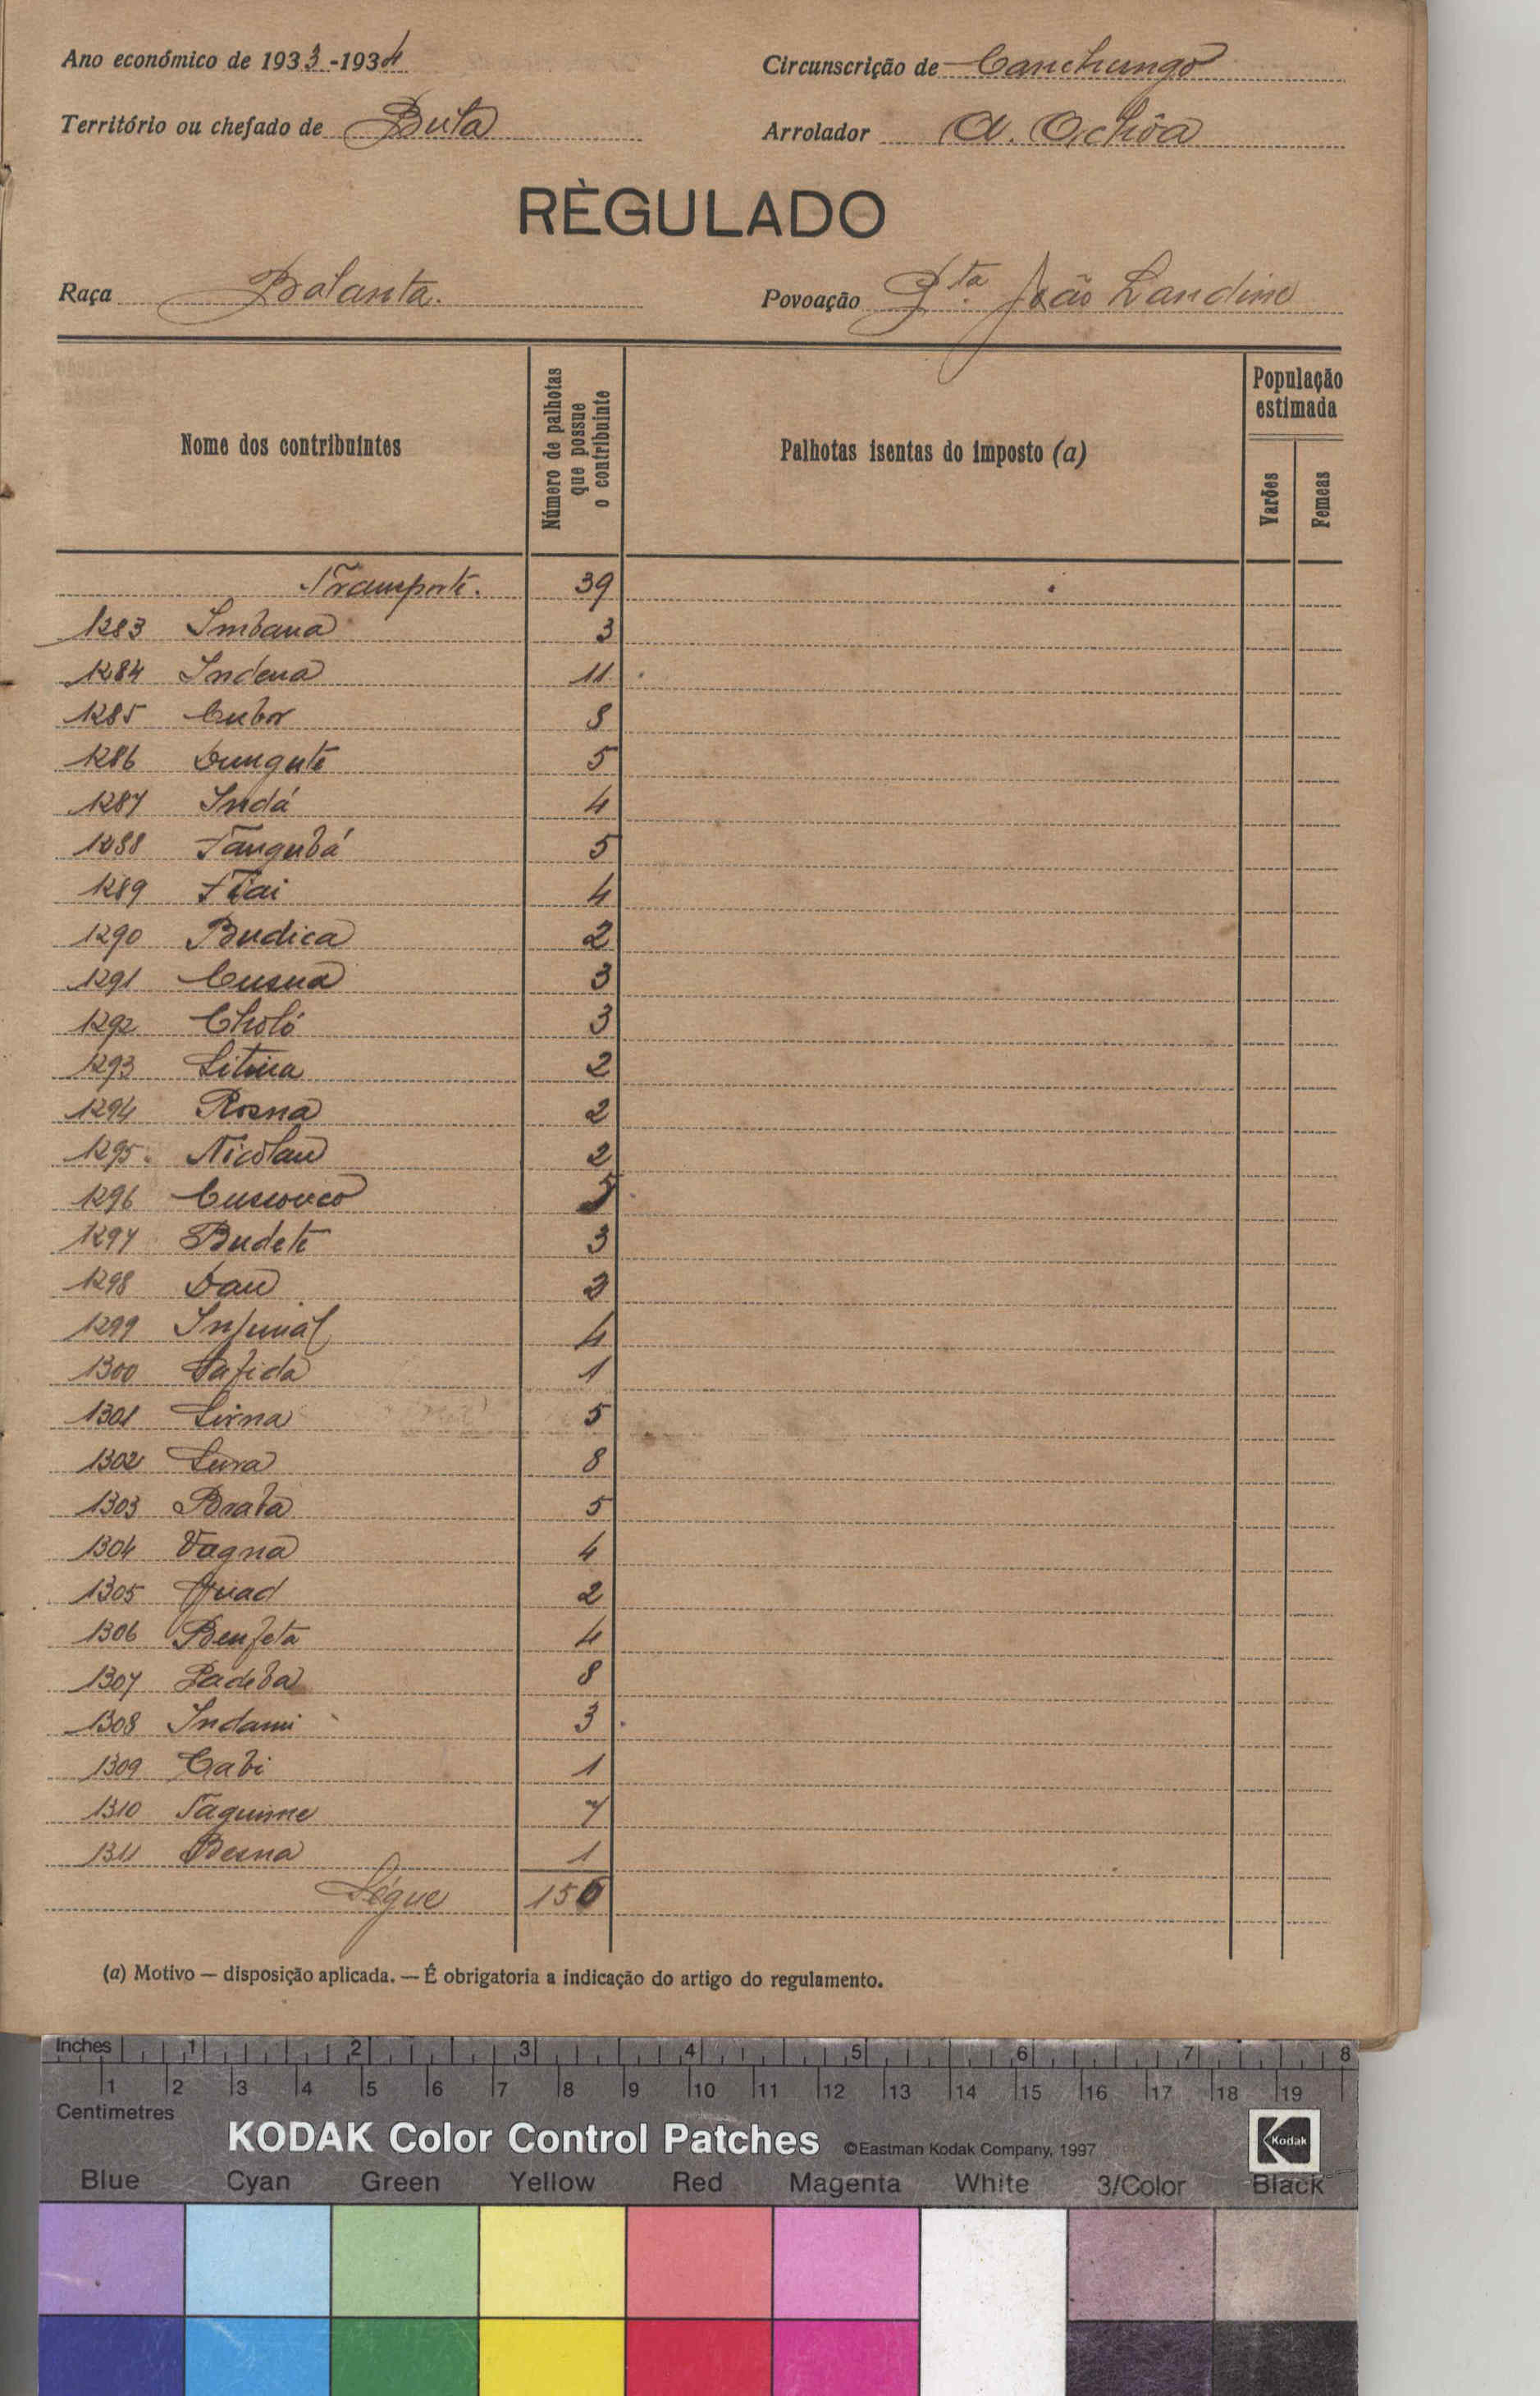 Ano económico de 1933-1934
Circunscrição de Canchungo
Território ou chefado de Buta
Arrolador A. Ochôa
RÈGULADO
Raça Balanta.
Povoação Pta. João Landine
Nome dos contribuintes
Número de palhotas que possue o contribuinte
Palhotas isentas do imposto (a)
População estimada
Varões
Femeas
Transporte. 39
1283 Imbana 3
1284 Indena 11
1285 Cubor 8
1286 Dungute 5
1287 Indá 4
1288 Tangubá 5
1289 Tiai 4
1290 Budica 2
1291 Cusna 3
1292 Choló 3
1293 2
1294 Rosna 2
1295 Nicolau 2
1296 5
1297 Budete 3
1298 Dau 2
1299 4
1300 Safida 1
1301 Lirna 5
1302 Lura 8
1303 Braba 5
1304 Vagna 4
1305 2
1306 Benfeta 4
1307 Padeba 8
1308 Indami 3
1309 Cabi 1
1310 Taguime 7
1311 Besna 1
Ségue 156
(a) Motivo — disposição aplicada. — É obrigatoria a indicação do artigo do regulamento.
Inches 1 2 3 4 5 6 7 8
1 2 3 4 5 6 7 8 9 10 11 12 13 14 15 16 17 18 19
Centimetres
KODAK Color Control Patches ©Eastman Kodak Company, 1997 Kodak
Blue Cyan Green Yellow Red Magenta White 3/Color Black